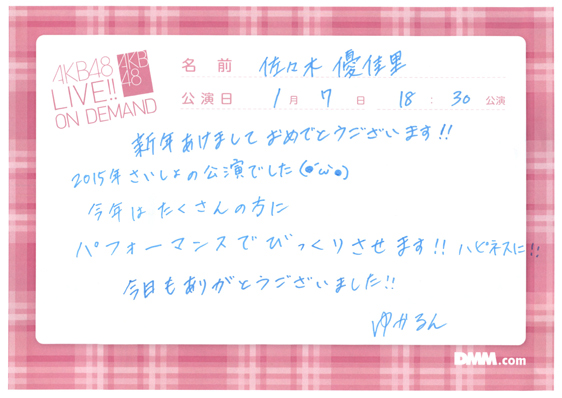 AKB48
LIVE!!
ON DEMAND
AKB
48
名前 佐々木 優佳里
公演日 1月 7日 18:30 公演
新年あけまして おめでとうございます!!
2015年さいしょの公演でした(●´ω`●)
今年は たくさんの方に
パフォーマンスでびっくりさせます!! ハピネスに!!
今日もありがとうございました!!
ゆかるん
DMM.com